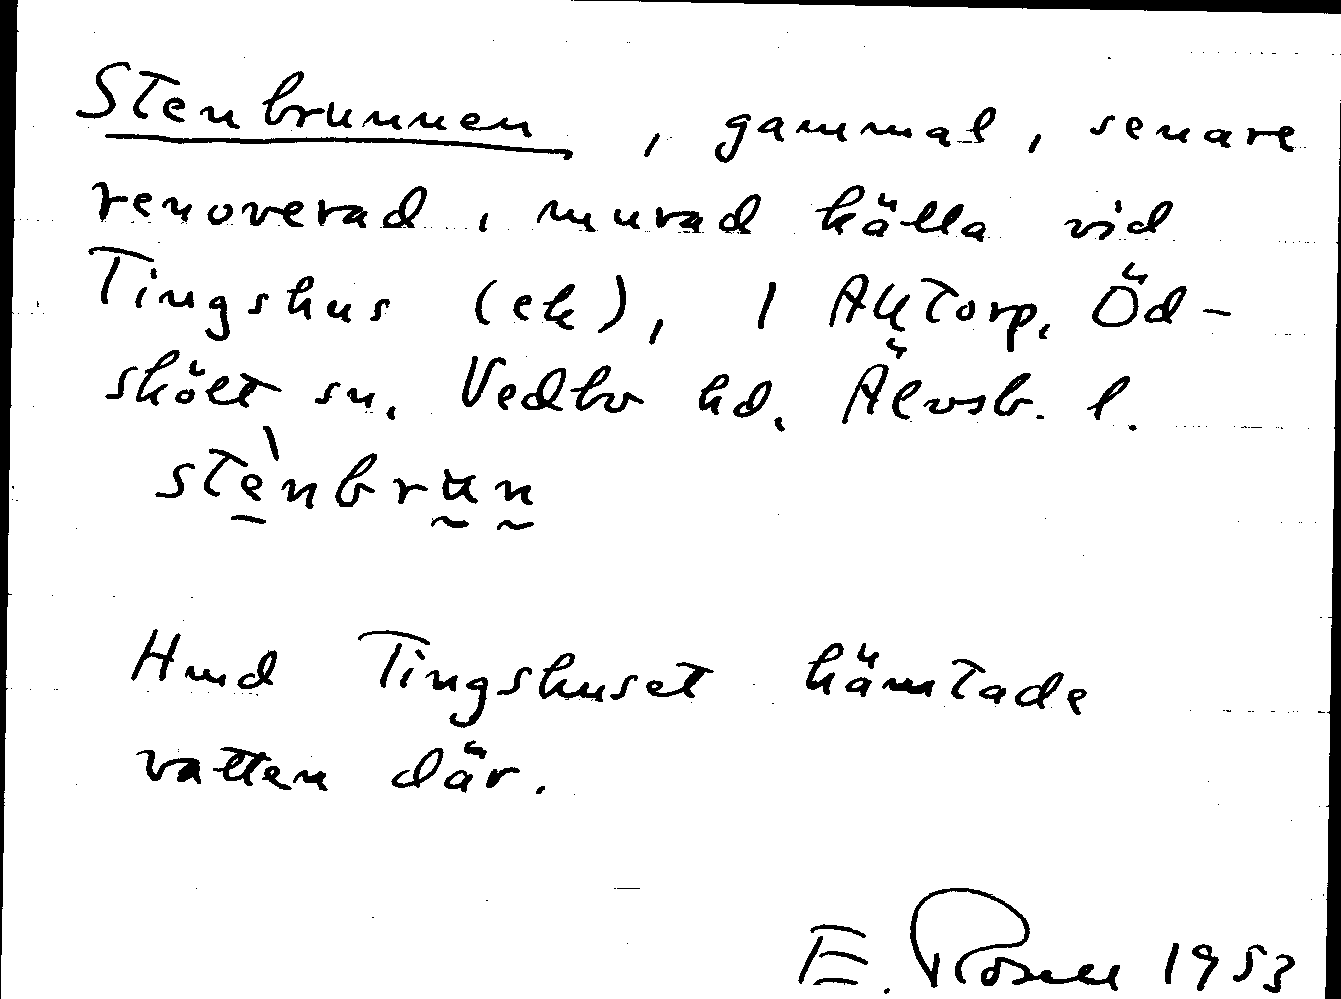 Stenbrunnen, gammal, senare
renoverad, murad källa vid
Tingshus (ek), 1 Aktorp, Öd-
skölt sn. Vedbo hd. Älvsb. l.
stènbrun
Hmd Tingshuset hämtade
vatten där.
E. Rosell 1953